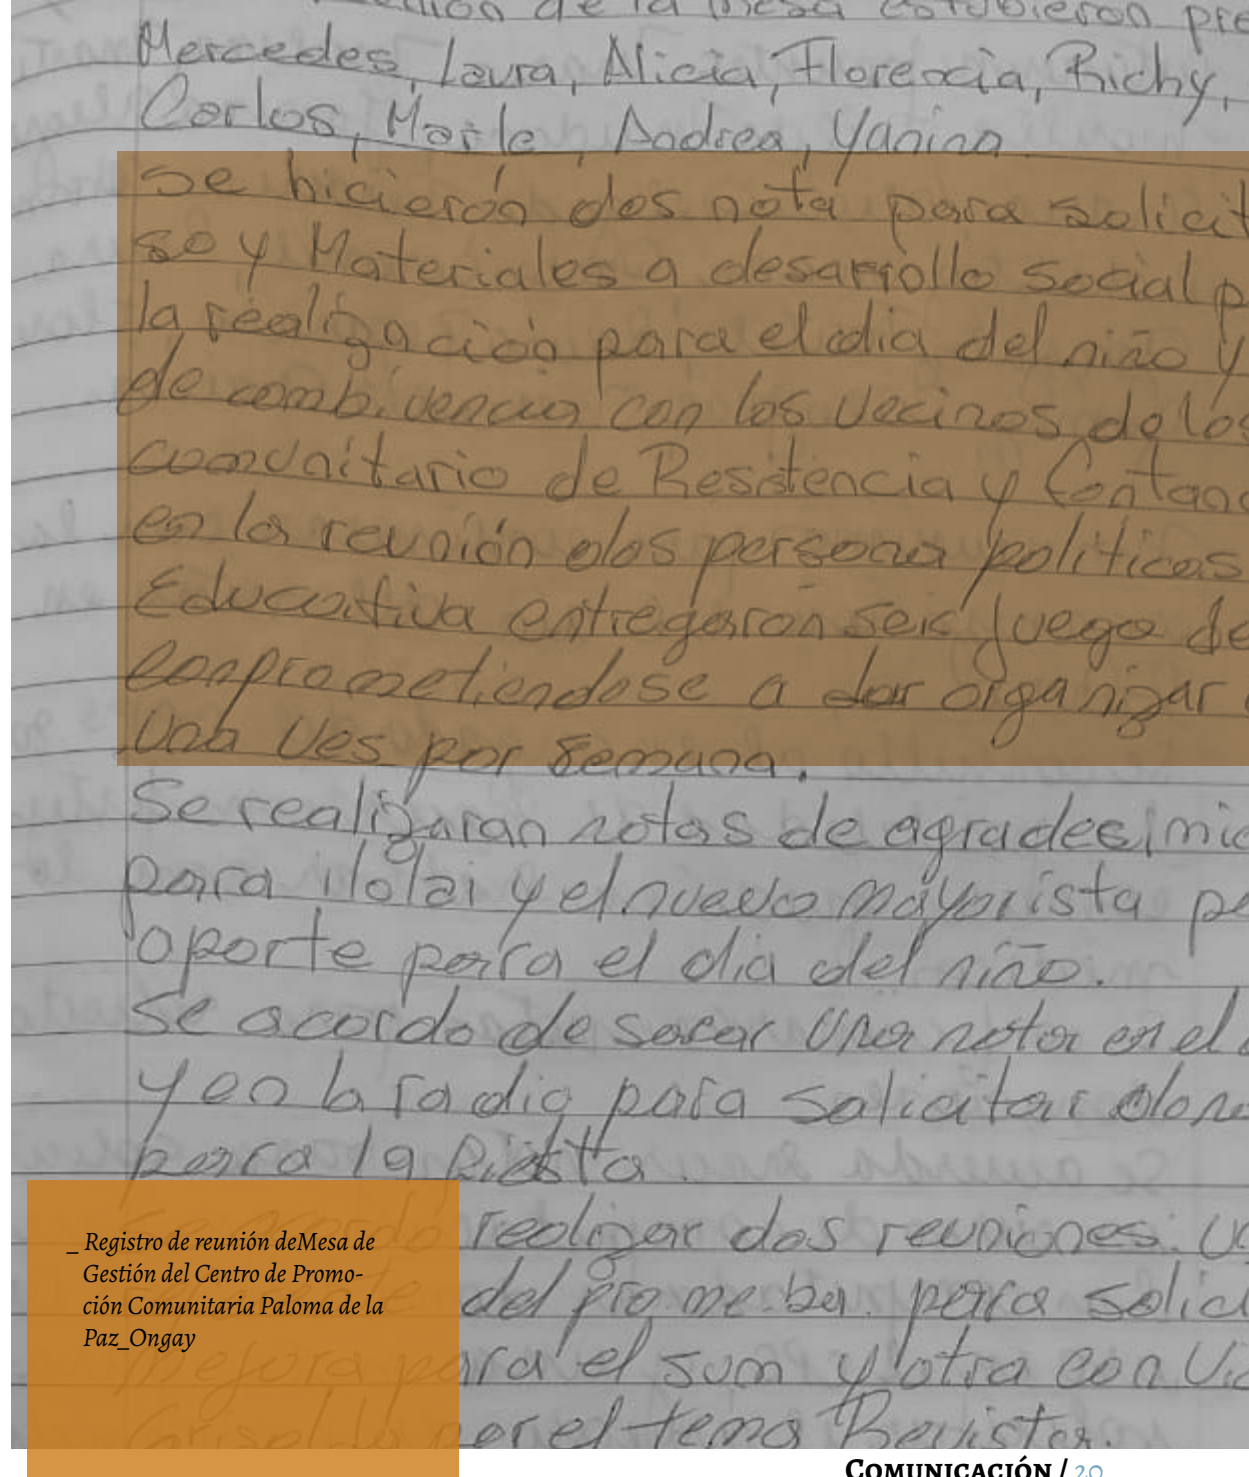 de la mesa estubieron pre
Mercedes, Laura, Alicia, Florencia, Richy,
Carlos, Marle, Andrea, Yanina
se hicierón dos nota para solicit
so y Materiales a desarrollo social p
la realización para el dia del niño y
de combivencia con los vecinos de los
comunitario de Resistencia y Contand
en la reunión dos persona politicas
Educativa entregaron seis juego de
comprometiendose a dar organizar
una ves por semana.
Se realizaran notas de agradesimie
para y el nuevo mayorista po
aporte para el dia del niño.
Se acordo de sacar una nota en el
y en la radio para solicitar done
para la fiesta.
realizar dos reuniones. u
del promeba para solici
mejora para el sum y otra con
por el tema Revista.
_ Registro de reunión deMesa de
Gestión del Centro de Promo-
ción Comunitaria Paloma de la
Paz_Ongay
Comunicación / 20